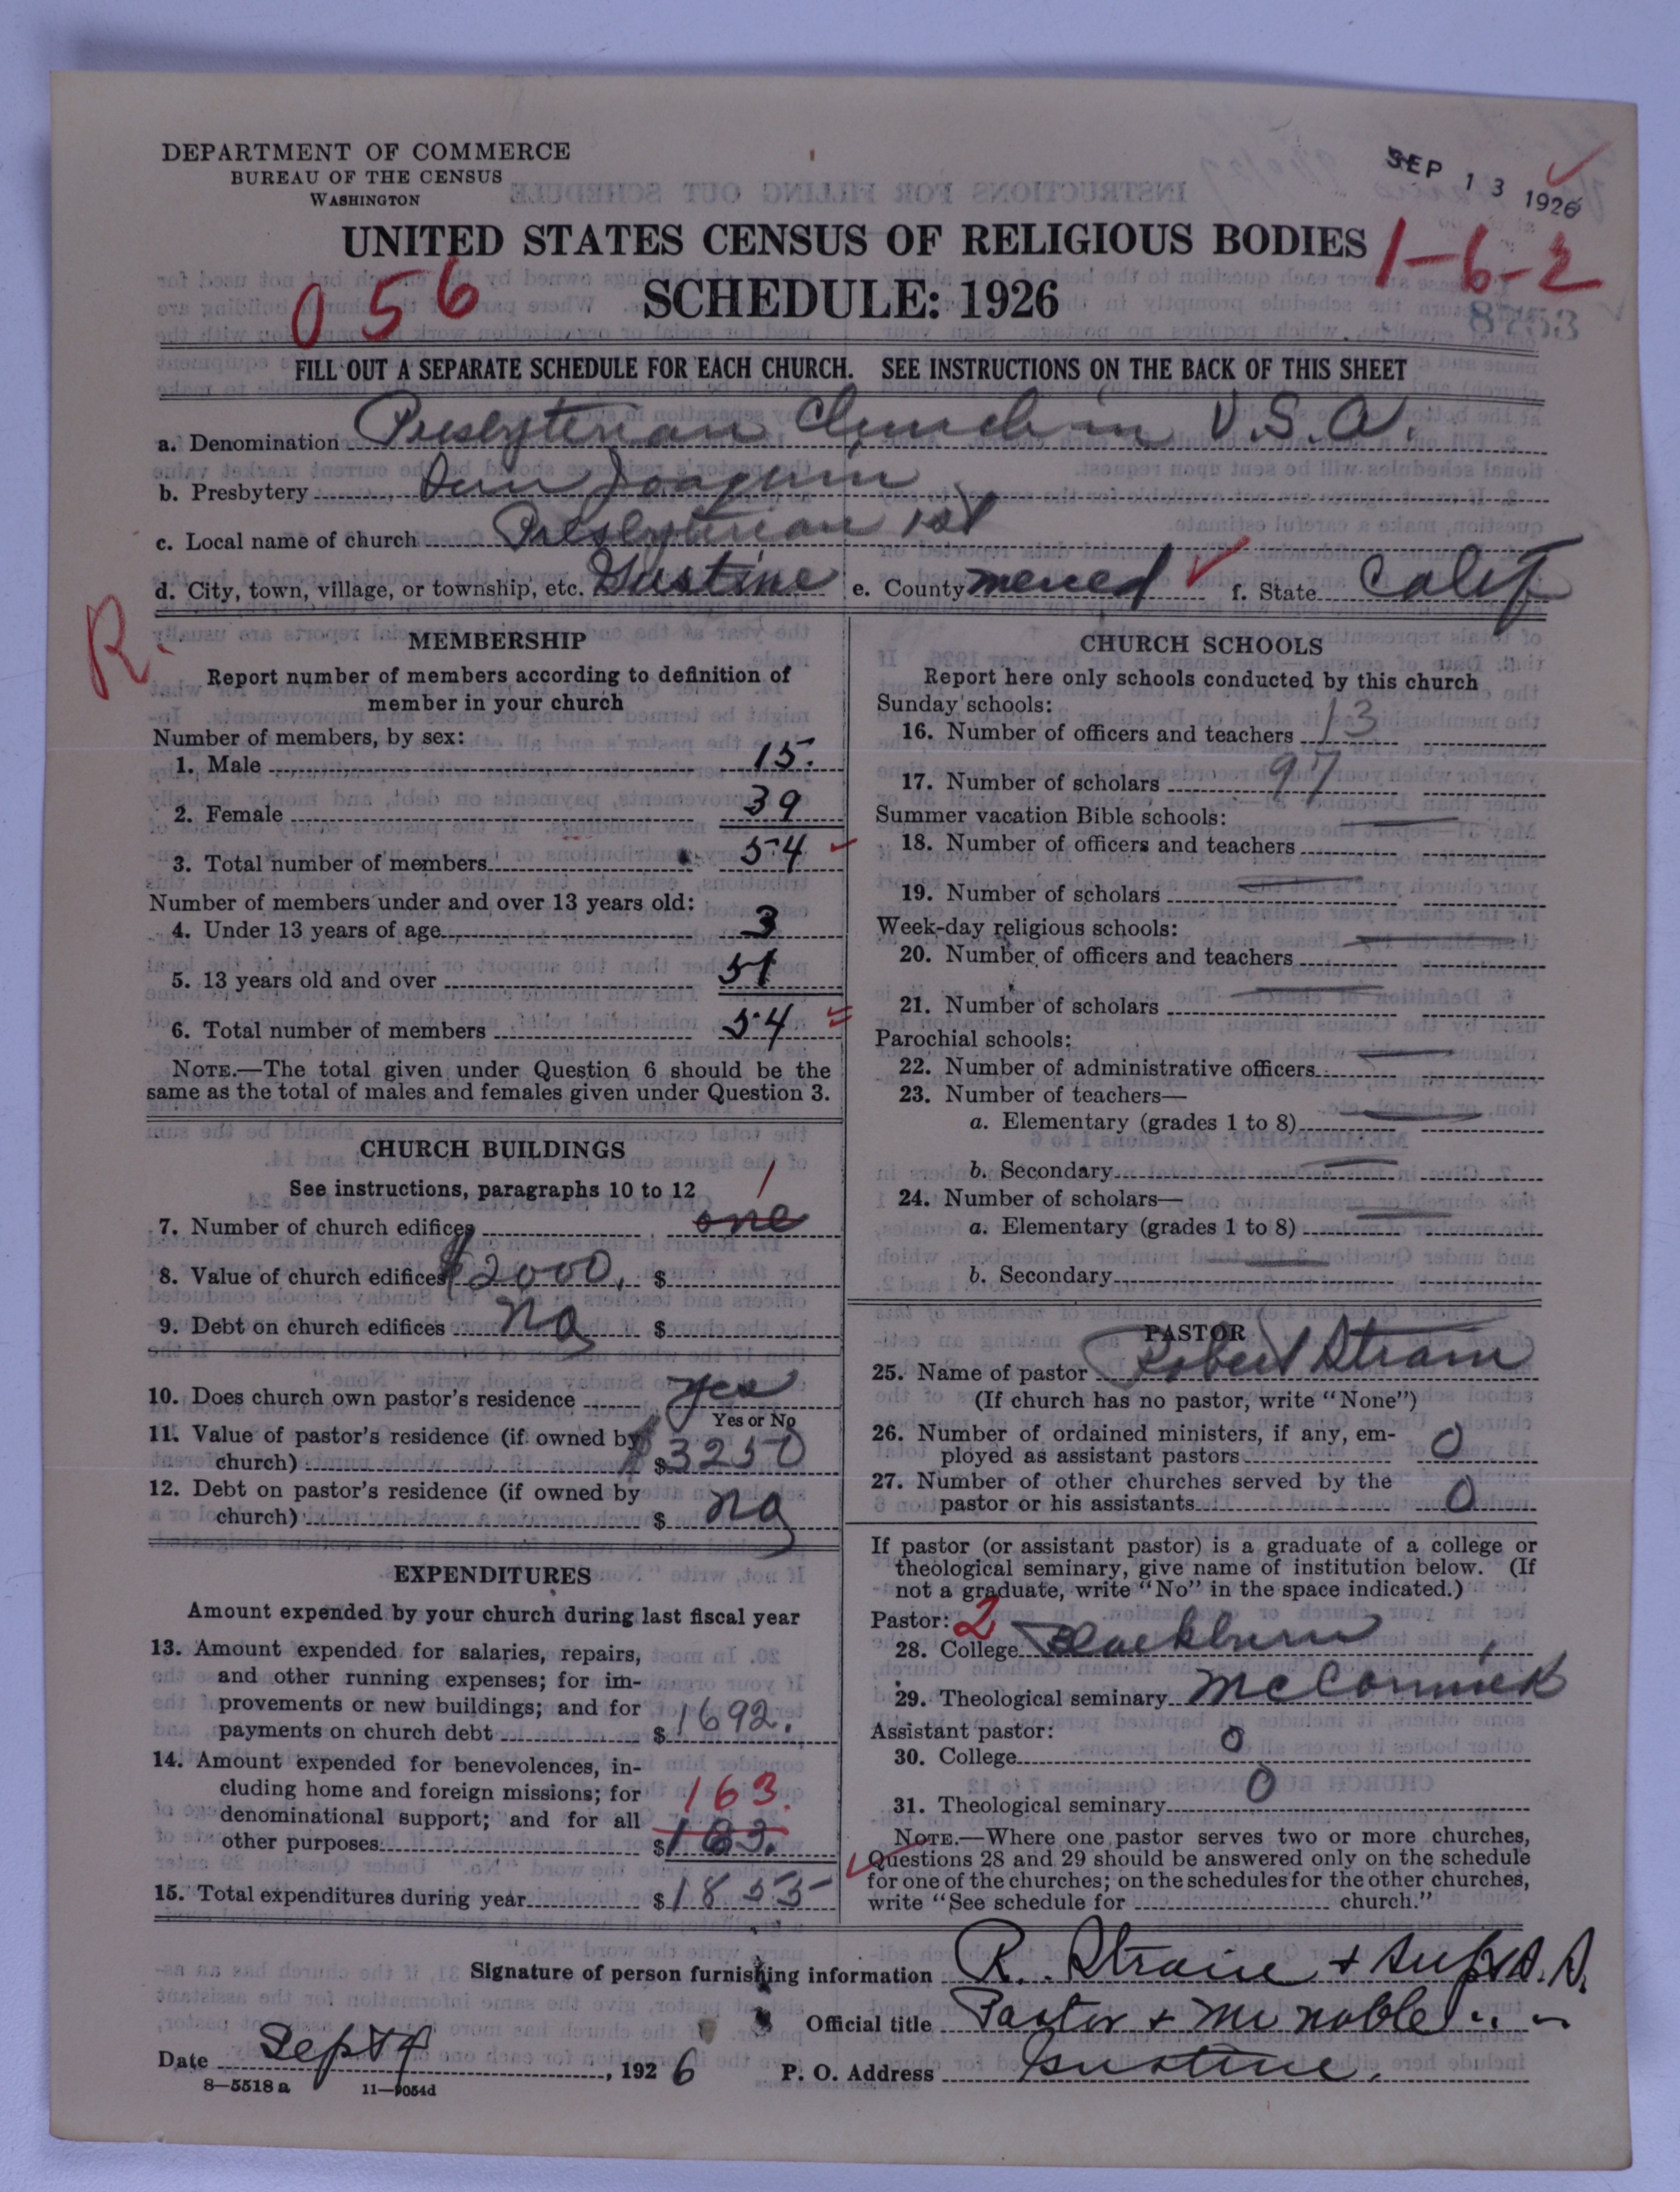 DEPARTMENT OF COMMERCE
BUREAU OF THE CENSUS
WASHINGTON
SEP 13 1926
UNITED STATES CENSUS OF RELIGIOUS BODIES
1-6-2
056
SCHEDULE: 1926
8753
FILL OUT A SEPARATE SCHEDULE FOR EACH CHURCH. SEE INSTRUCTIONS ON THE BACK OF THIS SHEET
a. Denomination Presbyterian Church in U.S.A.
b. Presbytery San Joaquin
c. Local name of church Presbyterian 1st
d. City, town, village, or township, etc. Gustine e. County Merced f. State Calif
R.
MEMBERSHIP
Report number of members according to definition of
member in your church
Number of members, by sex:
1. Male 15.
2. Female 39
3. Total number of members 54
Number of members under and over 13 years old:
4. Under 13 years of age 3
5. 13 years old and over 51
6. Total number of members 54
NOTE.—The total given under Question 6 should be the
same as the total of males and females given under Question 3.
CHURCH BUILDINGS
See instructions, paragraphs 10 to 12
1
7. Number of church edifices one
8. Value of church edifices $2000. $
9. Debt on church edifices no $
10. Does church own pastor's residence yes
Yes or No
11. Value of pastor's residence (if owned by
church) $ $3250
12. Debt on pastor's residence (if owned by
church) $ no
EXPENDITURES
Amount expended by your church during last fiscal year
13. Amount expended for salaries, repairs,
and other running expenses; for im-
provements or new buildings; and for
payments on church debt $1692.
14. Amount expended for benevolences, in-
cluding home and foreign missions; for
163.
denominational support; and for all
other purposes $163.
15. Total expenditures during year $1855
CHURCH SCHOOLS
Report here only schools conducted by this church
Sunday schools:
16. Number of officers and teachers 13
17. Number of scholars 97
Summer vacation Bible schools:
18. Number of officers and teachers
19. Number of scholars
Week-day religious schools:
20. Number of officers and teachers
21. Number of scholars
Parochial schools:
22. Number of administrative officers
23. Number of teachers—
a. Elementary (grades 1 to 8)
b. Secondary
24. Number of scholars—
a. Elementary (grades 1 to 8)
b. Secondary
PASTOR
25. Name of pastor Robert Strain
(If church has no pastor, write "None")
26. Number of ordained ministers, if any, em-
ployed as assistant pastors 0
27. Number of other churches served by the
pastor or his assistants 0
If pastor (or assistant pastor) is a graduate of a college or
theological seminary, give name of institution below. (If
not a graduate, write "No" in the space indicated.)
Pastor: 2
28. College Blackburn
29. Theological seminary McCormick
Assistant pastor:
30. College 0
31. Theological seminary 0
NOTE.—Where one pastor serves two or more churches,
Questions 28 and 29 should be answered only on the schedule
for one of the churches; on the schedules for the other churches,
write "See schedule for church."
Signature of person furnishing information R. Strain + Supt S.S.
Official title Pastor + Mr Noble " "
Date Sept 9, 1926 P. O. Address Gustine.
8—5518 a 11—9054d